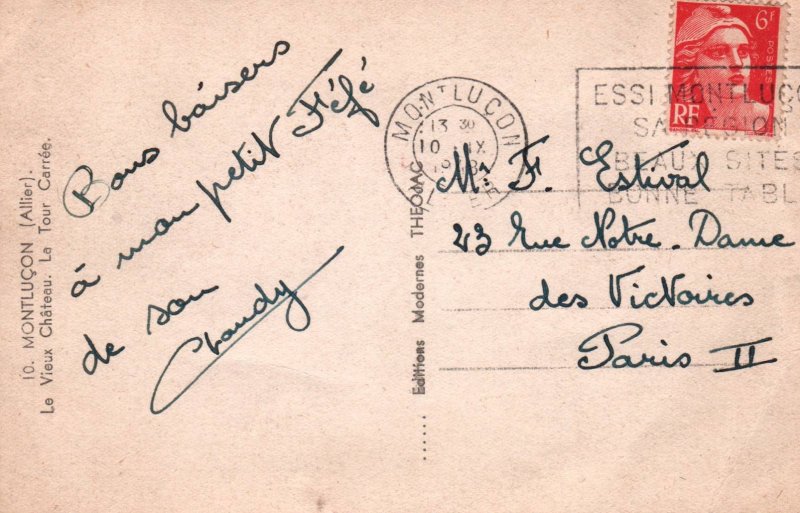 10. MONTLUÇON (Allier).
Le Vieux Château. La Tour Carrée.
Bons baisers
à mon petit Féfé
de son
Claudy
Editions Modernes THEOJAC
MONTLUÇON
13 30
10 IX
6F
RF
ESSI MONTLUÇO
SA REGION
BEAUX SITES
BONNE TABL
M. F. Estival
23 Rue Notre-Dame
des Victoires
Paris II